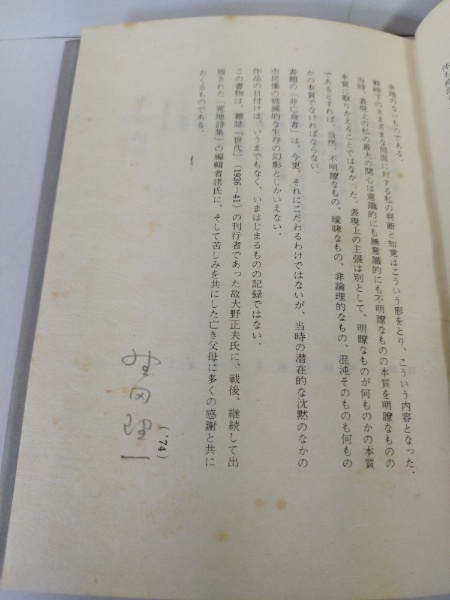 余地のないものである.
戦時下のさまざまな局面に対する私の判断と知覚はこういう形をとり、こういう内容となった.
当時、表現上の私の最大の関心は意識的にも無意識的にも不明瞭なものの本質を明瞭なものの
本質に取りかえることではなかった. 表現上の主張は別として、明瞭なものが何ものかの本質
であるとすれば、当然、不明瞭なもの、曖昧なもの、非論理的なもの、混沌そのものも何もの
かの本質でなければならない.
書題の「非亡命者」は、今更、それにこだわるわけではないが、当時の潜在的な沈黙のなかの
市民像の破滅的な生存の幻影としかいえない.
作品の日付けは、いうまでもなく、いまはじまるものの記録ではない.
この書物は、雑誌『世代』(1936-41)の刊行者であった故大野正夫氏に、戦後、継続して出
版された「荒地詩集」の編輯者諸氏に、そして苦しみを共にした亡き父母に多くの感謝と共に
おくるものである.
('74)